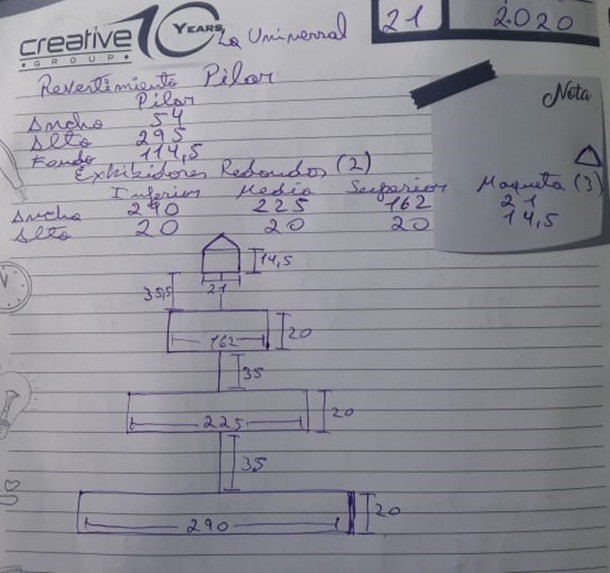 creative GROUP 10 YEARS La Universal 21 2020
Revestimiento Pilar
Pilar
Nota
Ancho 54
Alto 295
Fondo 114,5
Exhibidores Redondos (2)
Inferior Medio Superior Maqueta (3)
Ancho 290 225 162 21
Alto 20 20 20 14,5
14,5
35,5 21
162 20
35
225 20
35
290 20